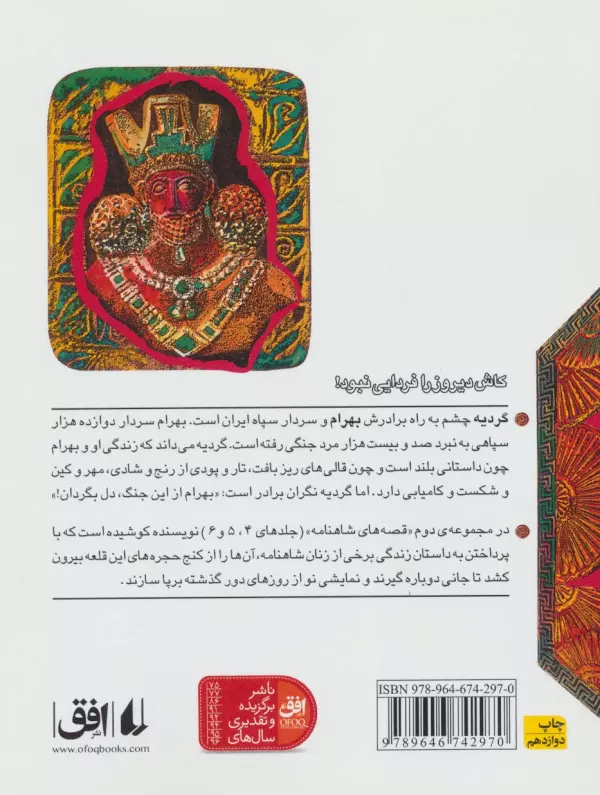 کاش دیروز را فردایی نبود!
گردیه چشم به راه برادرش بهرام و سردار سپاه ایران است. بهرام سردار دوازده هزار
سپاهی به نبرد صد و بیست هزار مرد جنگی رفته است. گردیه می‌داند که زندگی او و بهرام
چون داستانی بلند است و چون قالی‌های ریز بافت، تار و پودی از رنج و شادی، مهر و کین
و شکست و کامیابی دارد. اما گردیه نگران برادر است: «بهرام از این جنگ، دل بگردان!»
در مجموعه‌ی دوم «قصه‌های شاهنامه» (جلدهای ۴، ۵ و ۶) نویسنده کوشیده است که با
پرداختن به داستان زندگی برخی از زنان شاهنامه، آن‌ها را از کنج حجره‌های این قلعه بیرون
کشد تا جانی دوباره گیرند و نمایشی نو از روزهای دور گذشته برپا سازند.
نشر افق
www.ofoqbooks.com
ناشر
برگزیده
و تقدیری
سال‌های
۷۵
۷۷
۸۶
۹۱
۹۲
۹۳
۹۵
۹۶
افق
OFOQ
ISBN 978-964-674-297-0
9 789646 742970
چاپ
دوازدهم